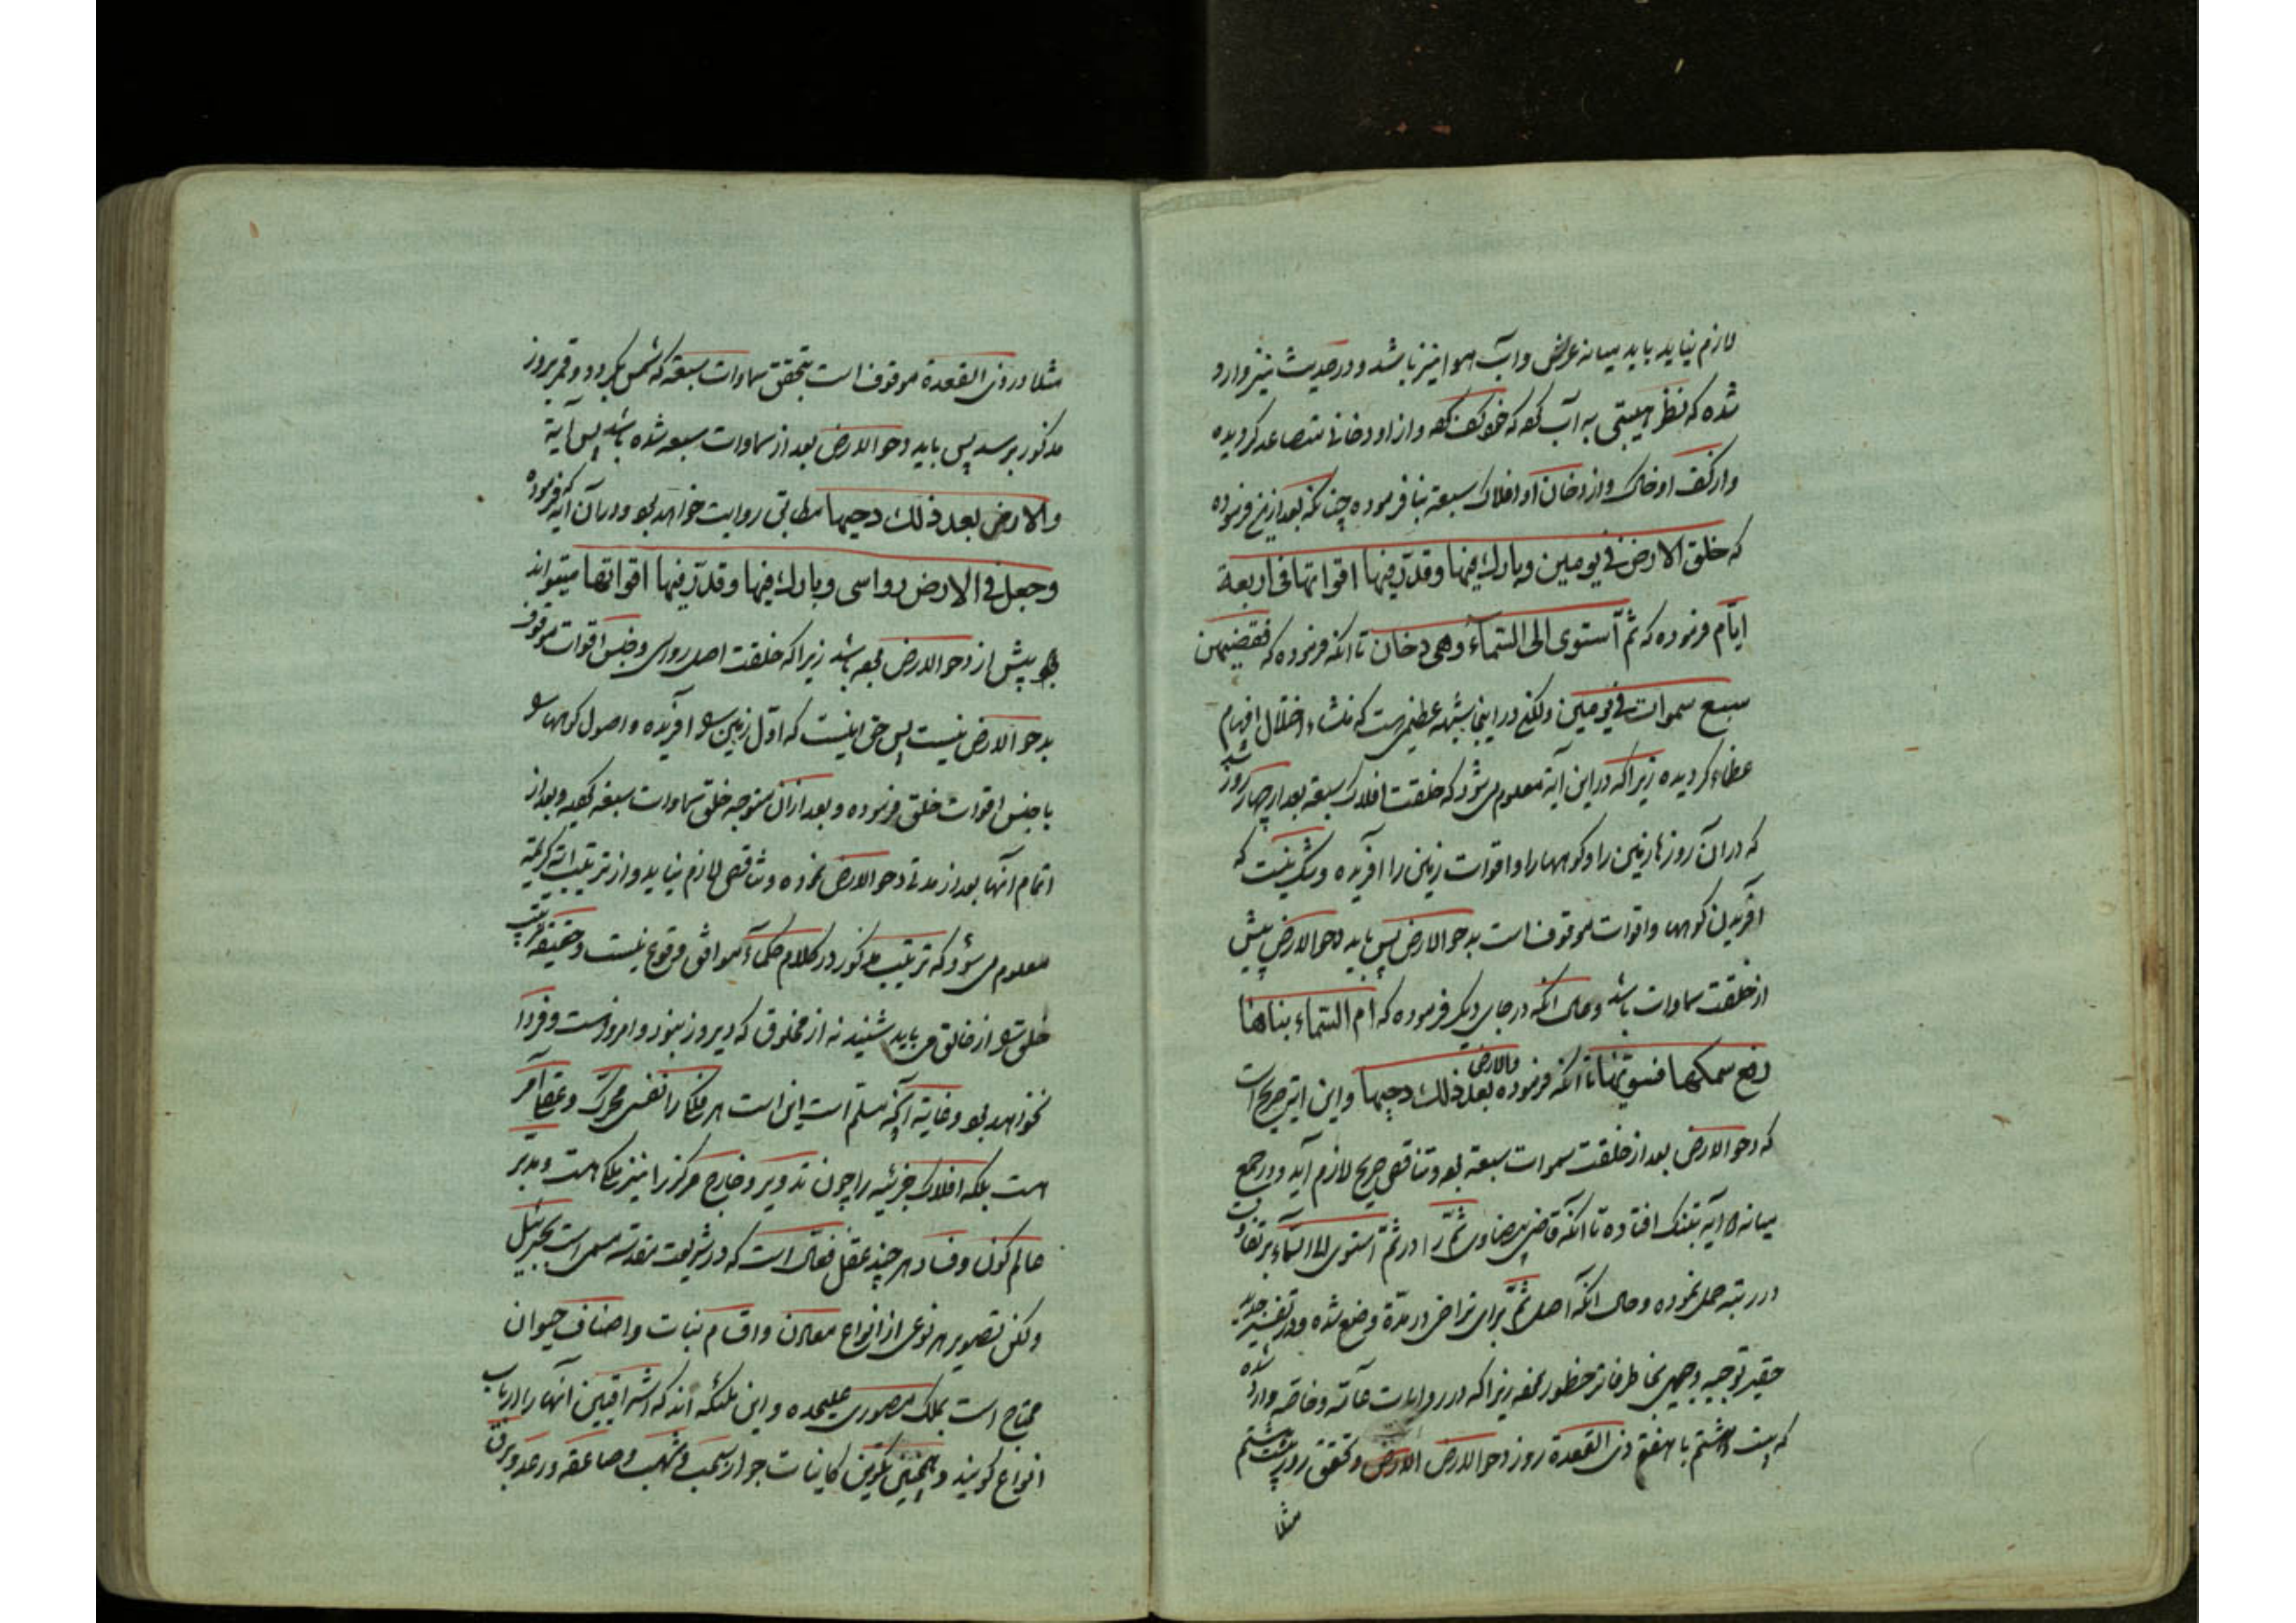 لازم نیاید باید میانه عرش و آب هوا نیز نباشد و در حدیث نیز وارد
شده که نظر هیبتی به آب کرد که خود کف کرد و از او دخانی متصاعد گردیده
و از کف او خاک و از دخان او افلاک سبعه بنا فرموده چنانکه بعد از فرموده
که خلق الارض فی یومین و بارك فیها و قدّر فیها اقواتها فی اربعة
ایّام فرموده که ثمّ استوی الی السّماء وهی دخان تا انکه فرموده که فقضیهن
سبع سموات فی یومین ولکن در اینجا شبهه عظیمی هست که منشاء اختلال افهام
عظماء گردیده زیرا که در این آیه معلوم می شود که خلقت افلاک سبعه بعد از چهار روز شد
که در آن روزها زمین را و کوهها را و اقوات زمین را افریده و شک نیست که
آفریدن کوهها و اقوات موقوف است بدحو الارض پس باید دحو الارض پیش
از خلقت سماوات باشد و حال انکه در جای دیگر فرموده که ام السّماء بناها
رفع سمکها فسوّیها تا انکه فرموده والارض بعد ذلك دحیها و این ایه صریح است
که دحو الارض بعد از خلقت سموات سبعه بود و تناقض صریح لازم آید و در جمع
میانه دو آیه بتنک افتاده تا انکه قاضی بیضاوی ثمّ را در ثمّ استوی الی السّماء بر تفاوت
در رتبه حمل نموده و حال انکه اصل ثمّ برای تراخی در مدّة وضع شده و در تفسیر جدید
حقیر توجیه وجهی بخاطر فاتر خطور نموده زیرا که در روایات عامّه و خاصّه وارد شده
که بیست و هشتم یا هفتم ذی القعدة روز دحو الارض و تحقق روز بیست هشتم
مثلا
مثلا در ذی القعدة موقوف است بتحقق سماوات سبعه که شمس بگردد و قمر بروز
مذکور برسد پس باید دحو الارض بعد از سماوات سبعه شده باشد پس آیة
والارض بعد ذلك دحیها مطابق روایت خواهد بود و در آن آیه که فرموده
وجعل فی الارض رواسی و بارك فیها و قدّر فیها اقواتها میتواند
پیش از دحو الارض بوده باشد زیرا که خلقت اصل رواسی و جنس اقوات موقوف
بدحو الارض نیست پس حق اینست که اول زمین را افریده و اصول کوهها را
با جنس اقوات خلق فرموده و بعد از آن متوجه خلق سماوات سبعه گردیده و بعد از
اتمام آنها بعد از مدتی دحو الارض نموده و تناقض لازم نیاید و از ترتیب آیه کریمه
معلوم می شود که ترتیب مذکور در کلام حکماء موافق وقوع نیست و حقیقة ترتیب
خلق را از خالق می باید شنید نه از مخلوق که دیروز نبود و امروز هست و فردا
نخواهد بود و غایة آنچه مسلّم است این است هر فلک را نفسی محرّک و عقل آمر
هست بلکه افلاک جزئیه را چون تدویر و خارج مرکز را نیز ملکی هست و مدبر
عالم کون و فساد هر چند عقل فعّال است که در شریعت مقدسه مسمی است بجبرئیل
ولکن تصویر هر نوعی از انواع معادن و اقسام نبات و اصناف حیوان
محتاج است بملک مصوری علیحده و این ملئکه اند که اشراقیین آنها را ارباب
انواع گویند و همچنین تکوین کاینات جو از سحب و شهب و صاعقه و رعد و برق